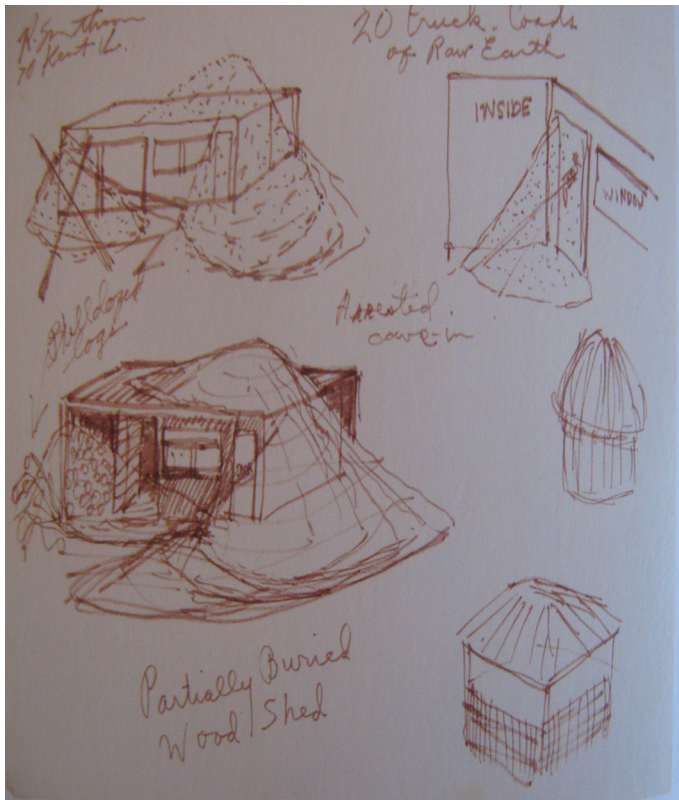 R. Smithson
70 Kent
20 truck. Loads
of Raw Earth
INSIDE
WINDOW
Arrested
cave-in
logs
Partially Buried
Wood/Shed